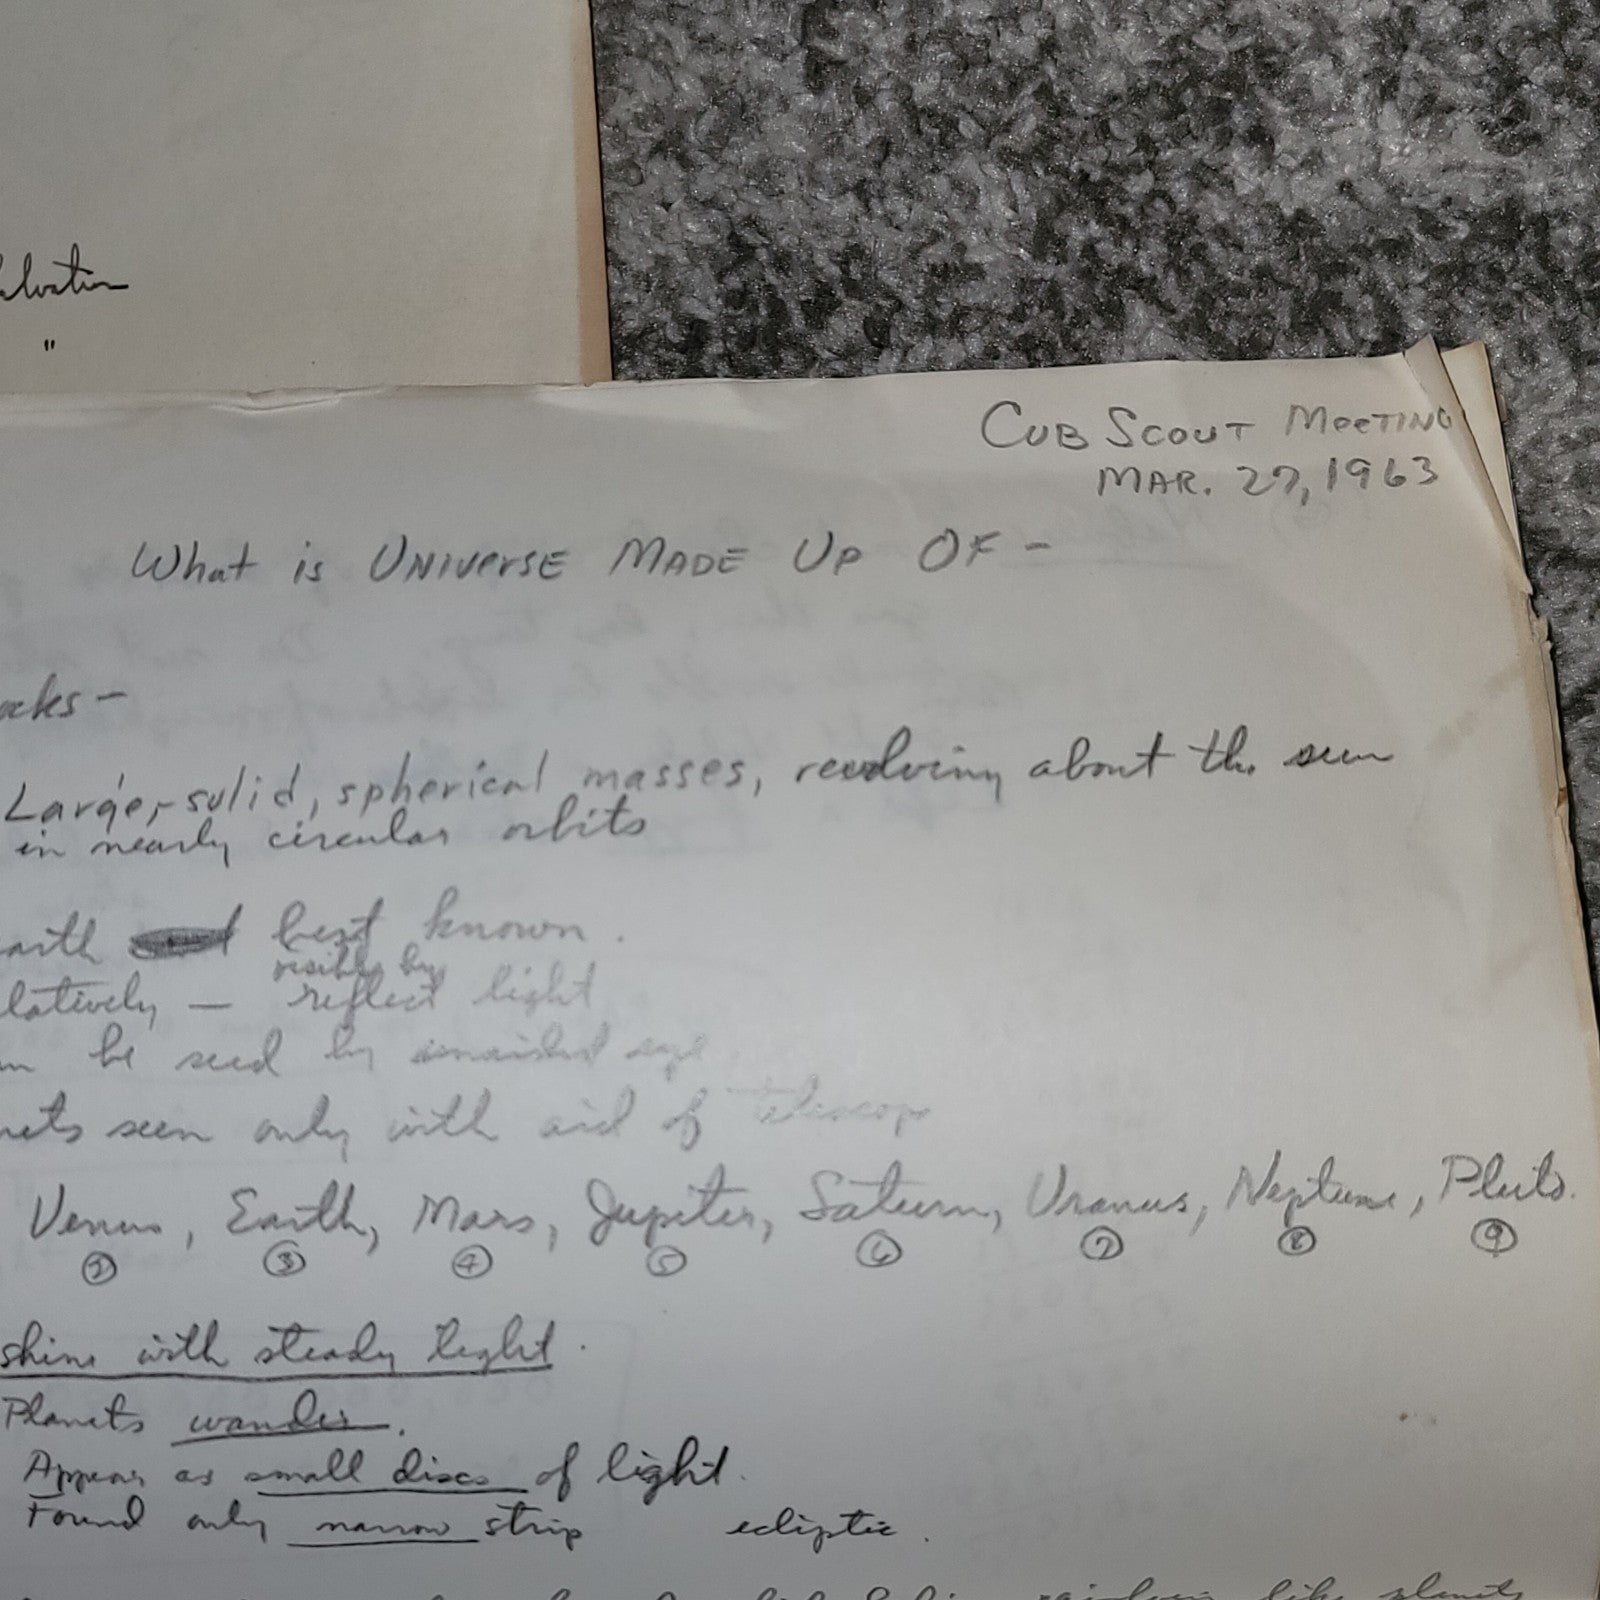 "
CUB SCOUT MEETING
MAR. 27, 1963
What is UNIVERSE MADE UP OF -
ocks -
Large, solid, spherical masses, revolving about the sun
in nearly circular orbits
arth best known.
visible by
latively - reflect light
be seed by unaided eye
nets seen only with aid of telescope
Venus, Earth, Mars, Jupiter, Saturn, Uranus, Neptune, Pluto.
② ③ ④ ⑤ ⑥ ⑦ ⑧ ⑨
shine with steady light.
Planets wander.
Appear as small discs of light.
Found only narrow strip ecliptic.
like planets